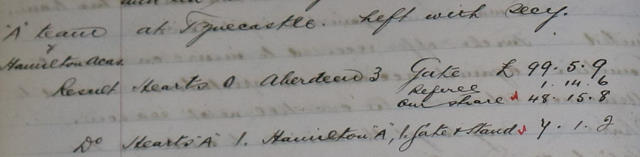 "A" team at Tynecastle. Left with Secy.
v
Hamilton Acas.
Result Hearts 0 Aberdeen 3 Gate £ 99.5.9
Referee 1.14.6
Our share 48.15.8
Do Hearts "A" 1. Hamilton "A", 1. Gate & Stand 7.1.2